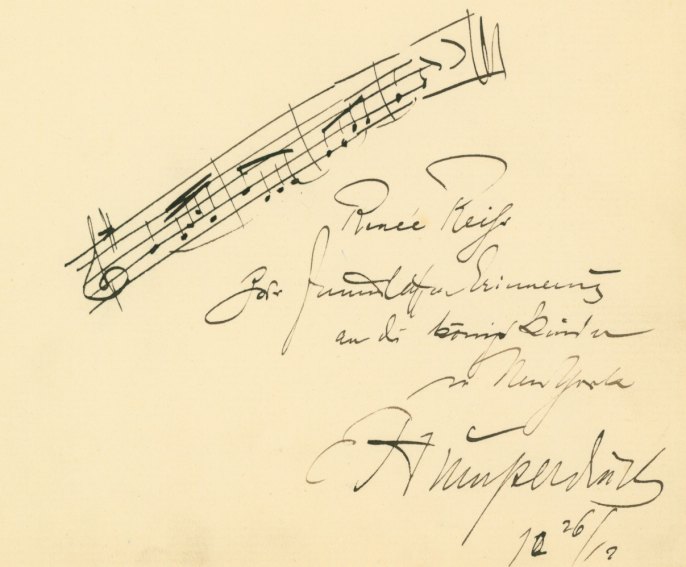 Renée Reiß
zur freundlichen Erinnerung
an die Königskinder
in New York
EHumperdinck
26/12